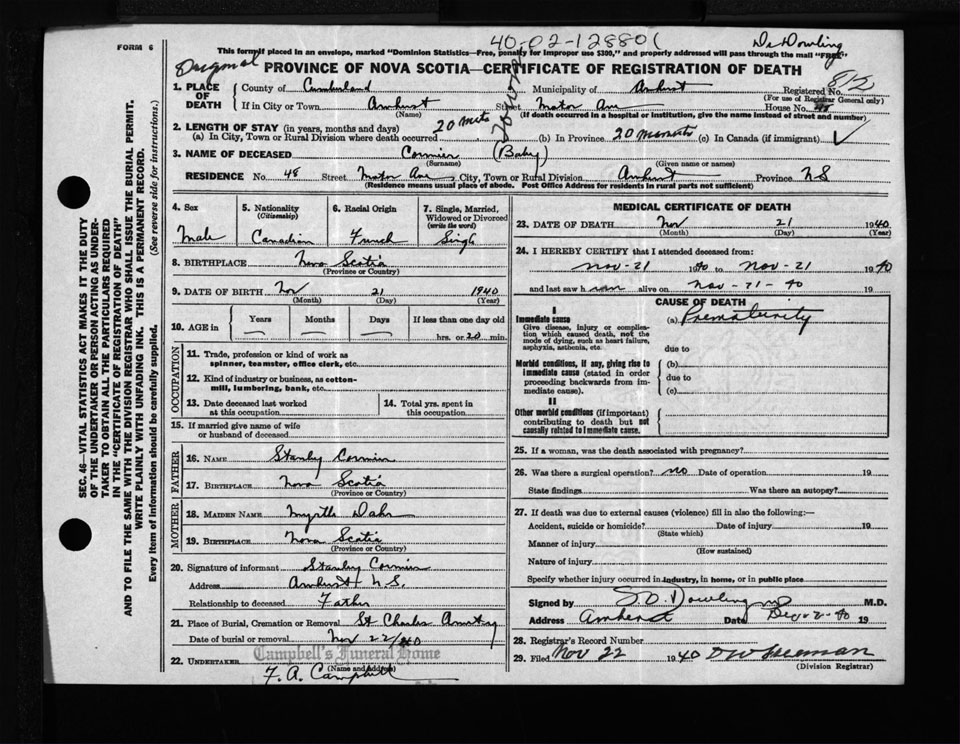 FORM 6
40-02-128801
Dr Dowling
This form if placed in an envelope, marked "Dominion Statistics—Free, penalty for improper use $300," and properly addressed will pass through the mail "FREE"
Original
PROVINCE OF NOVA SCOTIA—CERTIFICATE OF REGISTRATION OF DEATH
812
1. PLACE OF DEATH County of Cumberland Municipality of Amherst Registered No.
(For use of Registrar General only)
If in City or Town Amherst Street Motor Ave House No. 48
(Name) (If death occurred in a hospital or institution, give the name instead of street and number)
2. LENGTH OF STAY (in years, months and days)
(a) In City, Town or Rural Division where death occurred 20 mts (b) In Province 20 minutes (c) In Canada (if immigrant)
3. NAME OF DECEASED Cormier (Baby)
(Surname) (Given name or names)
RESIDENCE No. 48 Street Motor Ave City, Town or Rural Division Amherst Province NS
(Residence means usual place of abode. Post Office Address for residents in rural parts not sufficient)
4. Sex Male
5. Nationality (Citizenship) Canadian
6. Racial Origin French
7. Single, Married, Widowed or Divorced (write the word) Single
8. BIRTHPLACE Nova Scotia
(Province or Country)
9. DATE OF BIRTH Nov 21 1940
(Month) (Day) (Year)
10. AGE in Years Months Days If less than one day old
hrs. or 20 min.
OCCUPATION
11. Trade, profession or kind of work as spinner, teamster, office clerk, etc.
12. Kind of industry or business, as cotton-mill, lumbering, bank, etc.
13. Date deceased last worked at this occupation
14. Total yrs. spent in this occupation
15. If married give name of wife or husband of deceased
FATHER
16. NAME Stanley Cormier
17. BIRTHPLACE Nova Scotia
(Province or Country)
MOTHER
18. MAIDEN NAME Myrtle
19. BIRTHPLACE Nova Scotia
(Province or Country)
20. Signature of informant Stanley Cormier
Address Amherst N.S.
Relationship to deceased Father
21. Place of Burial, Cremation or Removal St Charles
Date of burial or removal Nov 22/40
Campbell's Funeral Home
22. UNDERTAKER F. A. Campbell
(Name and Address)
MEDICAL CERTIFICATE OF DEATH
23. DATE OF DEATH Nov 21 1940
(Month) (Day) (Year)
24. I HEREBY CERTIFY that I attended deceased from:
Nov-21 1940 to Nov-21 1940
and last saw h alive on Nov-21-40 19
CAUSE OF DEATH
I
Immediate cause (a) Prematurity
Give disease, injury or complication which caused death, not the mode of dying, such as heart failure, asphyxia, asthenia, etc.
due to
Morbid conditions, if any, giving rise to immediate cause (stated in order proceeding backwards from immediate cause).
(b)
due to
(c)
II
Other morbid conditions (if important) contributing to death but not causally related to immediate cause.
25. If a woman, was the death associated with pregnancy?
26. Was there a surgical operation? no Date of operation 19
State findings Was there an autopsy?
27. If death was due to external causes (violence) fill in also the following:—
Accident, suicide or homicide? Date of injury 19
(State which)
Manner of injury
(How sustained)
Nature of injury
Specify whether injury occurred in industry, in home, or in public place
Signed by Dowling MD M.D.
Address Amherst Date Dec-2-40 19
28. Registrar's Record Number
29. Filed Nov 22 1940
(Division Registrar)
SEC. 46—VITAL STATISTICS ACT MAKES IT THE DUTY
OF THE UNDERTAKER OR PERSON ACTING AS UNDER-
TAKER TO OBTAIN ALL THE PARTICULARS REQUIRED
IN THE "CERTIFICATE OF REGISTRATION OF DEATH"
AND TO FILE THE SAME WITH THE DIVISION REGISTRAR WHO SHALL ISSUE THE BURIAL PERMIT.
WRITE PLAINLY WITH UNFADING INK. THIS IS A PERMANENT RECORD.
Every item of information should be carefully supplied. (See reverse side for instructions.)